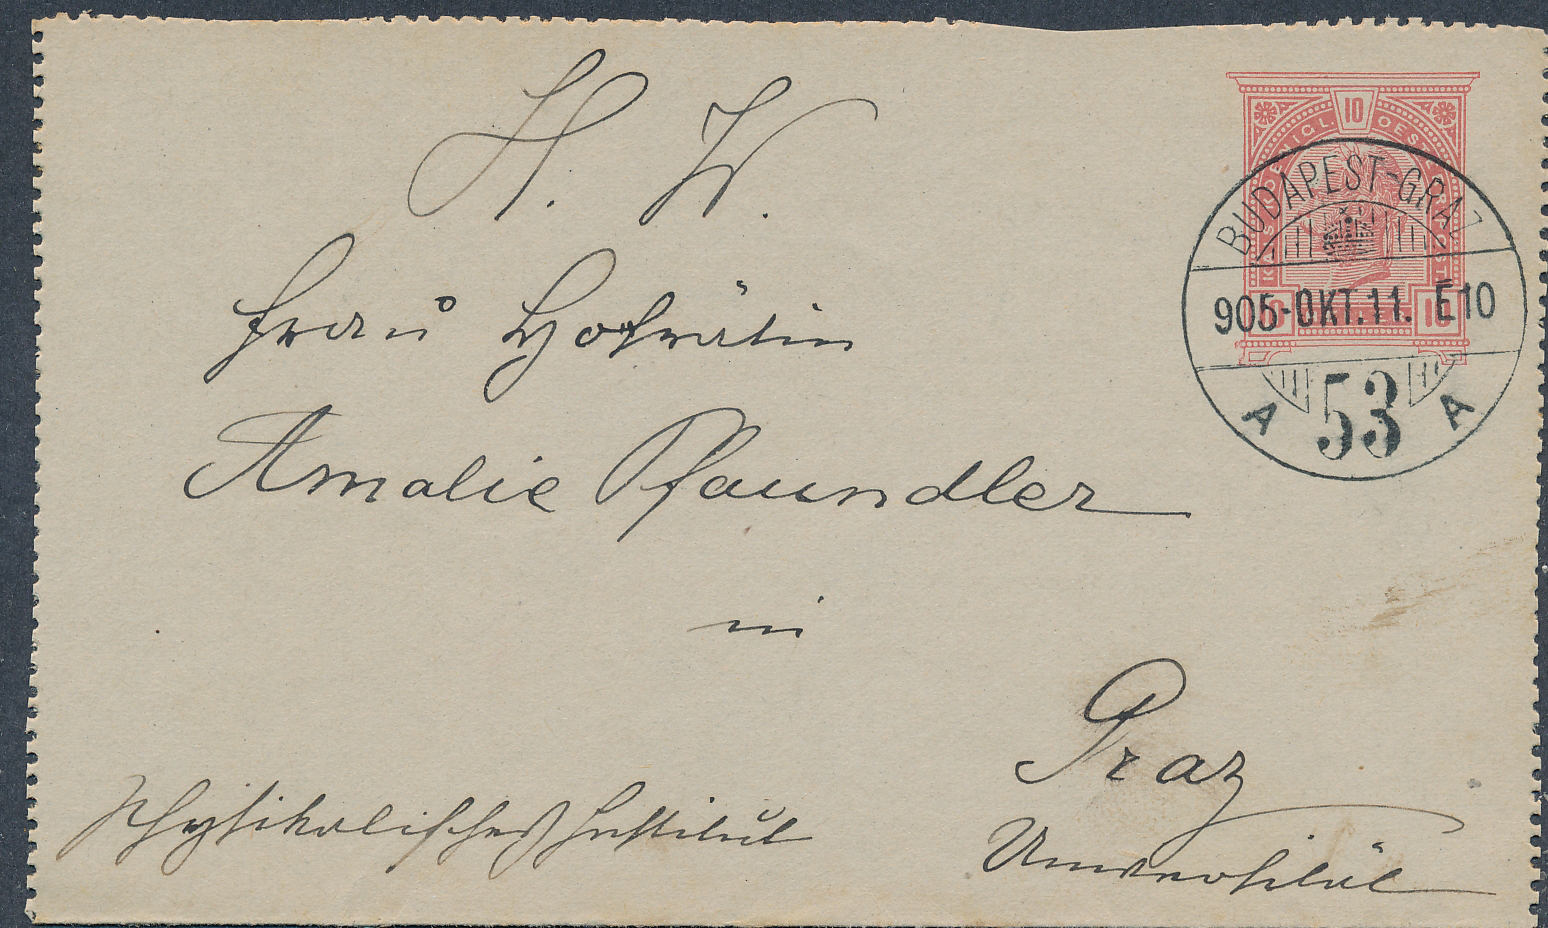 H. W.
10
BUDAPEST-GRAZ
905-OKT.11. E10
10
A 53 A
Frau Hofrätin
Amalie Pfaundler
in
Graz
Physikalisches Institut
Universität